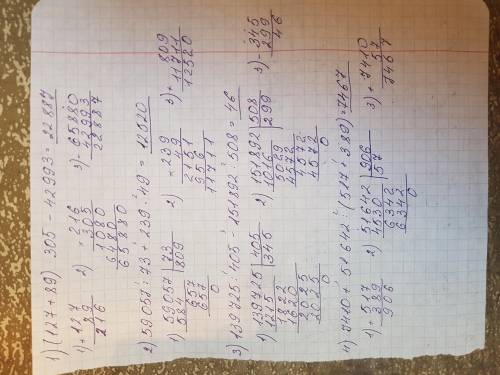 1) (127 + 89) · 305 - 42993 = 22887
1) + 127
89
216
2) × 216
305
1080
6480
65880
3) - 65880
42993
22887
2) 59057 : 73 + 239 · 49 = 12520
1) 59057 | 73
584 | 809
657
657
0
2) × 239
49
2151
956
11711
3) + 809
11711
12520
3) 139725 : 405 - 151892 : 508 = 46
1) 139725 | 405
1215 | 345
1822
1620
2025
2025
0
2) 151892 | 508
1016 | 299
5029
4572
4572
4572
0
3) - 345
299
46
4) 7410 + 51642 : (517 + 389) = 7467
1) + 517
389
906
2) 51642 | 906
4530 | 57
6342
6342
0
3) + 7410
57
7467